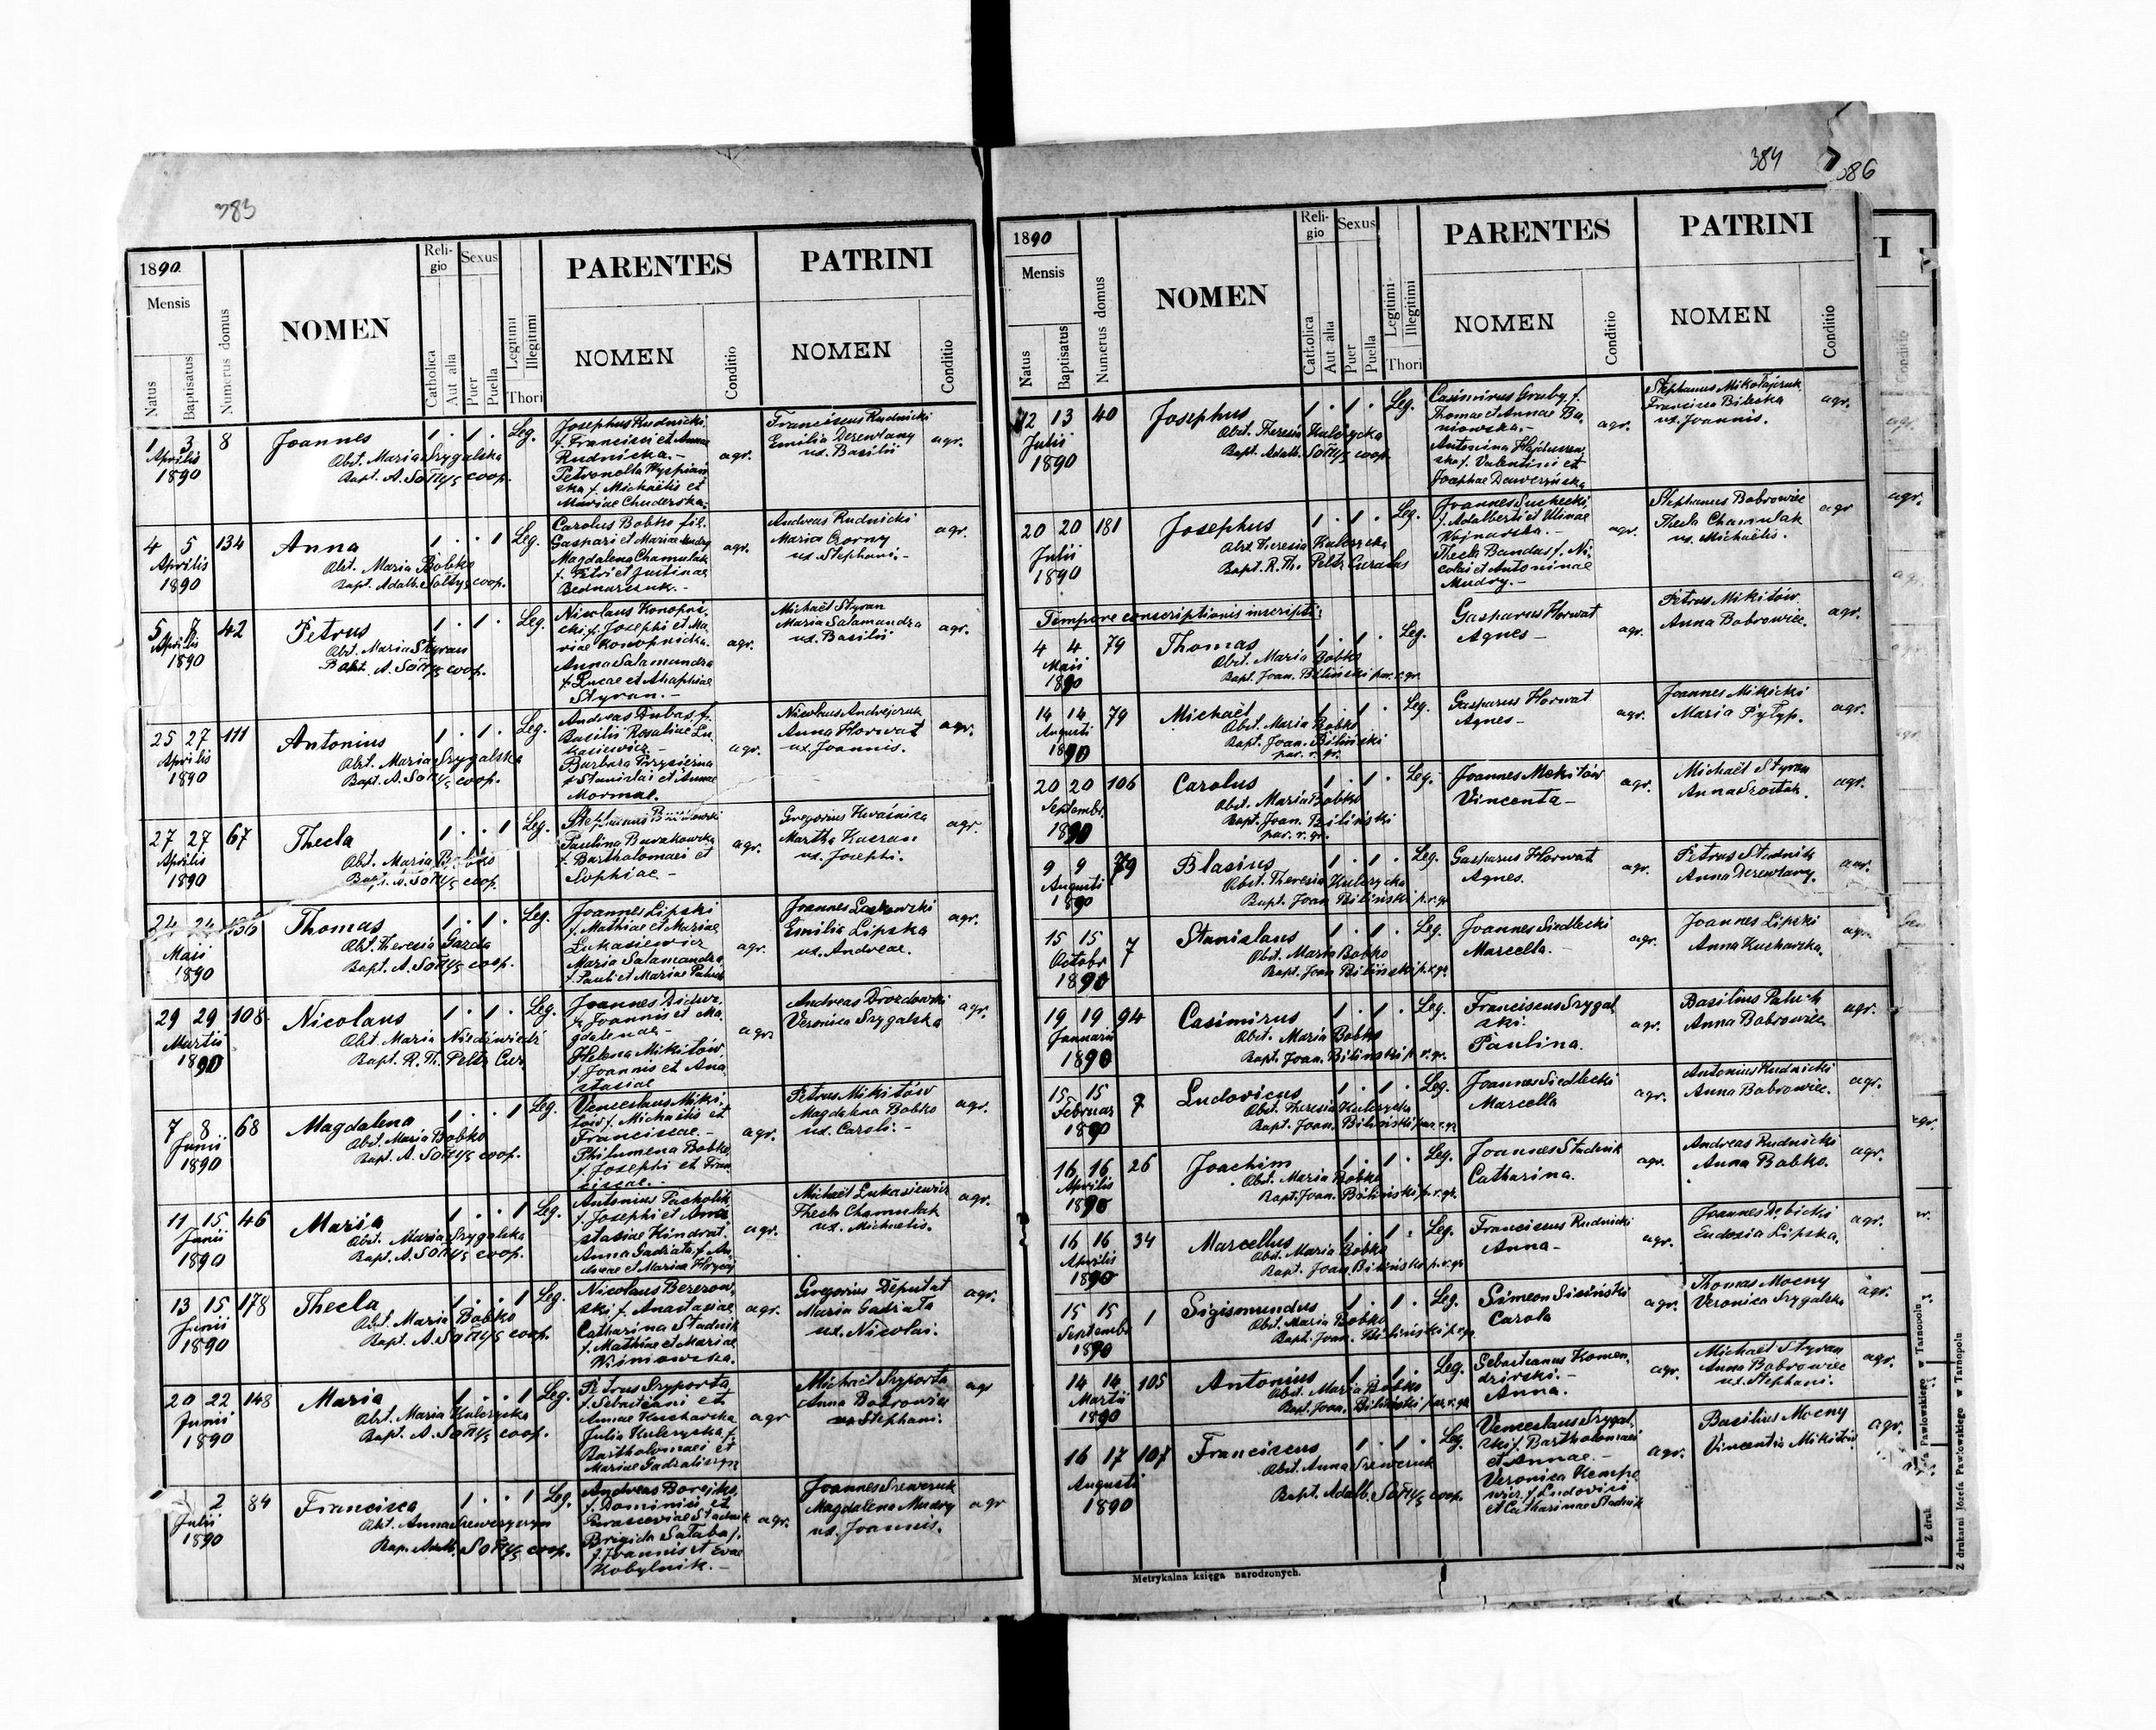 383
1890
Mensis
Natus
Baptisatus
Numerus domus
NOMEN
Religio
Catholica
Aut alia
Sexus
Puer
Puella
Legitimi
Illegitimi
Thori
PARENTES
NOMEN
Conditio
PATRINI
NOMEN
Conditio
1 3 8 Joannes 1 . 1 . Leg.
Aprilis
1890
Obst. Maria Szygalska
Bapt. A. Sołtys coop.
Josephus Rudnicki
f. Francisci et Annae
Rudnicka.-
Petronella
f. Michaëlis et
Mariae Chuderska.
agr.
Franciscus Rudnicki
Emilia Derewlany
ux. Basilii
agr.
4 5 134 Anna 1 . . 1 Leg.
Aprilis
1890
Obst. Maria Bobko
Bapt. Adalb. Sołtys coop.
Carolus Bobko fil.
Gaspari et Maria Mudry
Magdalena Chamulak
f. Petri et Justinae
Bednarczuk.-
agr.
Andreas Rudnicki
Maria Czorny
ux. Stephani.-
agr.
5 7 42 Petrus 1 . 1 . Leg.
Aprilis
1890
Obst. Maria Styran
Bapt. A. Sołtys coop.
Nicolaus Konopni-
cki f. Josephi et Ma-
riae Konopnicka.
Anna Salamandra
f. Lucae et Ahaphiae
Styran.-
agr.
Michaël Styran
Maria Salamandra
ux. Basilii
agr.
25 27 111 Antonius 1 . 1 . Leg.
Aprilis
1890
Obst. Maria Szygalska
Bapt. A. Sołtys coop.
Andreas Dubas f.
Basilii Rosaliae Lu-
kasiewicz -
Barbara
f. Stanislai et Annae
Mormal.
agr.
Nicolaus Andrejczuk
Anna Horwat
ux. Joannis.
agr.
27 27 67 Thecla 1 . . 1 Leg.
Aprilis
1890
Obst. Maria Bobko
Bapt. A. Sołtys coop.
Stephanus
Paulina Burakowska
f. Bartholomaei et
Sophiae -
agr.
Gregorius Kwaśnica
Martha
ux. Josephi.
agr.
24 24 136 Thomas 1 . 1 . Leg.
Maii
1890
Obst. Theresia Gazda
Bapt. A. Sołtys coop.
Joannes Lipski
f. Mathiae et Mariae
Lukasiewicz
Maria Salamandra
f. Pauli et Mariae Paluch
agr.
Joannes Laskowski
Emilia Lipska
ux. Andreae.
agr.
29 29 108 Nicolaus 1 . 1 . Leg.
Martii
1890
Obst. Maria Niedźwiedź
Bapt. R. Th. Peltz Cur.
Joannes
f. Joannis et Ma-
gdalenae -
Helena Mikitów
f. Joannis et Ana-
stasiae
agr.
Andreas Drozdowski
Veronica Szygalska
agr.
7 8 68 Magdalena 1 . . 1 Leg.
Junii
1890
Obst. Maria Bobko
Bapt. A. Sołtys coop.
Venceslaus Miki-
tów f. Michaëlis et
Franciscae -
Philumena Bobko
f. Josephi et Fran-
ciscae.-
agr.
Petrus Mikitów
Magdalena Bobko
ux. Caroli.-
agr.
11 15 46 Maria 1 . . 1 Leg.
Junii
1890
Obst. Maria Szygalska
Bapt. A. Sołtys coop.
Antonius Pacholik
f. Josephi et Ana-
stasiae Kindrat.
Anna Gadziata f. An-
dreae et Mariae
agr.
Michaël Lukasiewicz
Thecla Chamulak
ux. Michaelis.
agr.
13 15 178 Thecla 1 . . 1 Leg.
Junii
1890
Obst. Maria Bobko
Bapt. A. Sołtys coop.
Nicolaus Berezow-
ski f. Anastasiae
Catharina Stadnik
f. Mathiae et Mariae
Wiśniowska.
agr.
Gregorius Deputat
Maria Gadziata
ux. Nicolai.
agr.
20 22 148 Maria 1 . . 1 Leg.
Junii
1890
Obst. Maria Kulczycka
Bapt. A. Sołtys coop.
Petrus Szyporta
f. Sebastiani et
Annae Kucharska
Julia Kulczycka f.
Bartholomaei et
Mariae
agr
Michaël Szyporta
Anna Bobrowiec
ux Stephani.
agr
2 84 Francisca 1 . . 1 Leg.
Julii
1890
Obst. Anna
Bap. Adalb. Sołtys coop.
Andreas Borejko
f. Dominici et
Parasceviae Stadnik
Brigida Sałaba f.
f. Joannis et Evae
Kobylnik.-
agr.
Joannes Szewczuk
Magdalena Mudry
ux. Joannis.
agr
384
386
1890
Mensis
Natus
Baptisatus
Numerus domus
NOMEN
Religio
Catholica
Aut alia
Sexus
Puer
Puella
Legitimi
Illegitimi
Thori
PARENTES
NOMEN
Conditio
PATRINI
NOMEN
Conditio
12 13 40 Josephus 1 . 1 . Leg.
Julii
1890
Obst. Theresia Kulczycka
Bapt. Adalb. Sołtys coop.
Casimirus Gruby f.
Thomae et Annae Ba-
niowska.-
Antonina
f. Valentini et
Josephae
agr.
Stephanus Mikołajczuk
Francisca Bilecka
ux. Joannis.
agr.
20 20 181 Josephus 1 . 1 . Leg.
Julii
1890
Obst. Theresia Kulczycka
Bapt. R. Th. Peltz Curatus
Joannes Suchecki
f. Adalberti et Ulinae
Wojnarska.-
Thecla Bandas f. Ni-
colai et Antoninae
Mudry.-
agr.
Stephanus Bobrowiec
Thecla Chamulak
ux. Michaëlis.
agr
Tempore conscriptionis inscripti:
4 4 79 Thomas 1 . 1 . Leg.
Maii
1890
Obst. Maria Bobko
Bapt. Joan. Biliński par. r. gr.
Gasparus Horwat
Agnes -
agr.
Petrus Mikitów
Anna Bobrowiec.
agr.
14 14 79 Michaël 1 . 1 . Leg.
Augusti
1890
Obst. Maria Bobko
Bapt. Joan. Biliński
par. r. gr.
Gasparus Horwat
Agnes -
agr.
Joannes Mikicki
Maria Pyłyp.
agr.
20 20 106 Carolus 1 . 1 . Leg.
Septembr.
1890
Obst. Maria Bobko
Bapt. Joan. Biliński
par. r. gr.
Joannes Mikitów
Vincenta -
agr.
Michaël Styran
Anna Szostak.
agr.
9 9 79 Blasius 1 . 1 . Leg.
Augusti
1890
Obst. Theresia Kulczycka
Bapt. Joan Biliński p. r. gr
Gasparus Horwat
Agnes.
agr.
Petrus Stadnik
Anna Derewlany.
agr.
15 15 7 Stanislaus 1 . 1 . Leg.
Octobr
1890
Obst. Maria Bobko
Bapt. Joan Biliński p. r. gr
Joannes Siedlecki
Marcella.
agr.
Joannes Lipski
Anna Kucharska.
agr.
19 19 94 Casimirus 1 . 1 . Leg.
Januarii
1890
Obst. Maria Bobko
Bapt. Joan. Biliński p. r. gr.
Franciscus Szygal-
ski.
Paulina.
agr.
Basilius Paluch
Anna Bobrowiec
agr.
15 15 7 Ludovicus 1 . 1 . Leg.
Februar
1890
Obst. Theresia Kulczycka
Bapt. Joan. Biliński par. r. gr.
Joannes Siedlecki
Marcella
agr.
Antonius Rudnicki
Anna Bobrowiec.
agr.
16 16 26 Joachim 1 . 1 . Leg.
Aprilis
1890
Obst. Maria Bobko
Bapt. Joan. Biliński p. r. gr.
Joannes Stadnik
Catharina.
agr.
Andreas Rudnicki
Anna Bobko.
agr.
16 16 34 Marcellus 1 . 1 . Leg.
Aprilis
1890
Obst. Maria Bobko
Bapt. Joan. Biliński p. r. gr
Franciscus Rudnicki
Anna -
agr.
Joannes Dębicki
Eudosia Lipska.
agr.
15 15 1 Sigismundus 1 . 1 . Leg.
Septembr
1890
Obst. Maria Bobko
Bapt. Joan. Biliński p. r. gr.
Simeon Siciński
Carola
agr.
Thomas Mocny
Veronica Szygalska
agr.
14 14 105 Antonius 1 . 1 . Leg.
Martii
1890
Obst. Maria Bobko
Bapt. Joan. Biliński par. r. gr.
Sebastianus Komen-
dzirski.-
Anna.
agr.
Michaël Styran
Anna Bobrowiec
ux. Stephani.
agr.
16 17 107 Franciscus 1 . 1 . Leg.
Augusti
1890
Obst. Anna Szewczuk
Bapt. Adalb. Sołtys coop.
Venceslaus Szygal-
ski f. Bartholomaei
et Annae.-
Veronica Kempo-
wicz f. Ludovici
et Catharinae Stadnik
agr.
Basilius Mocny
Vincentia Mikitów
agr.
Metrykalna księga narodzonych.
Z drukarni Józefa Pawłowskiego w Tarnopolu